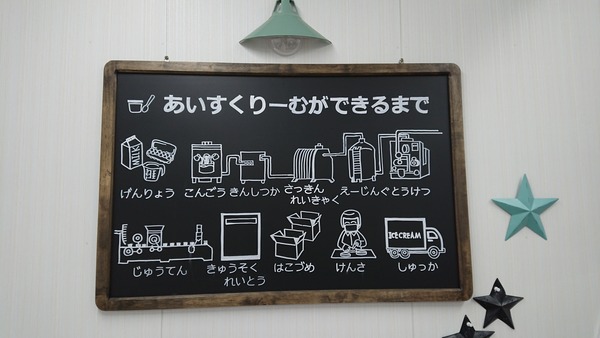 あいすくりーむができるまで
げんりょう こんごう きんしつか さっきん れいきゃく えーじんぐ とうけつ
じゅうてん きゅうそく れいとう はこづめ けんさ しゅっか
ICECREAM